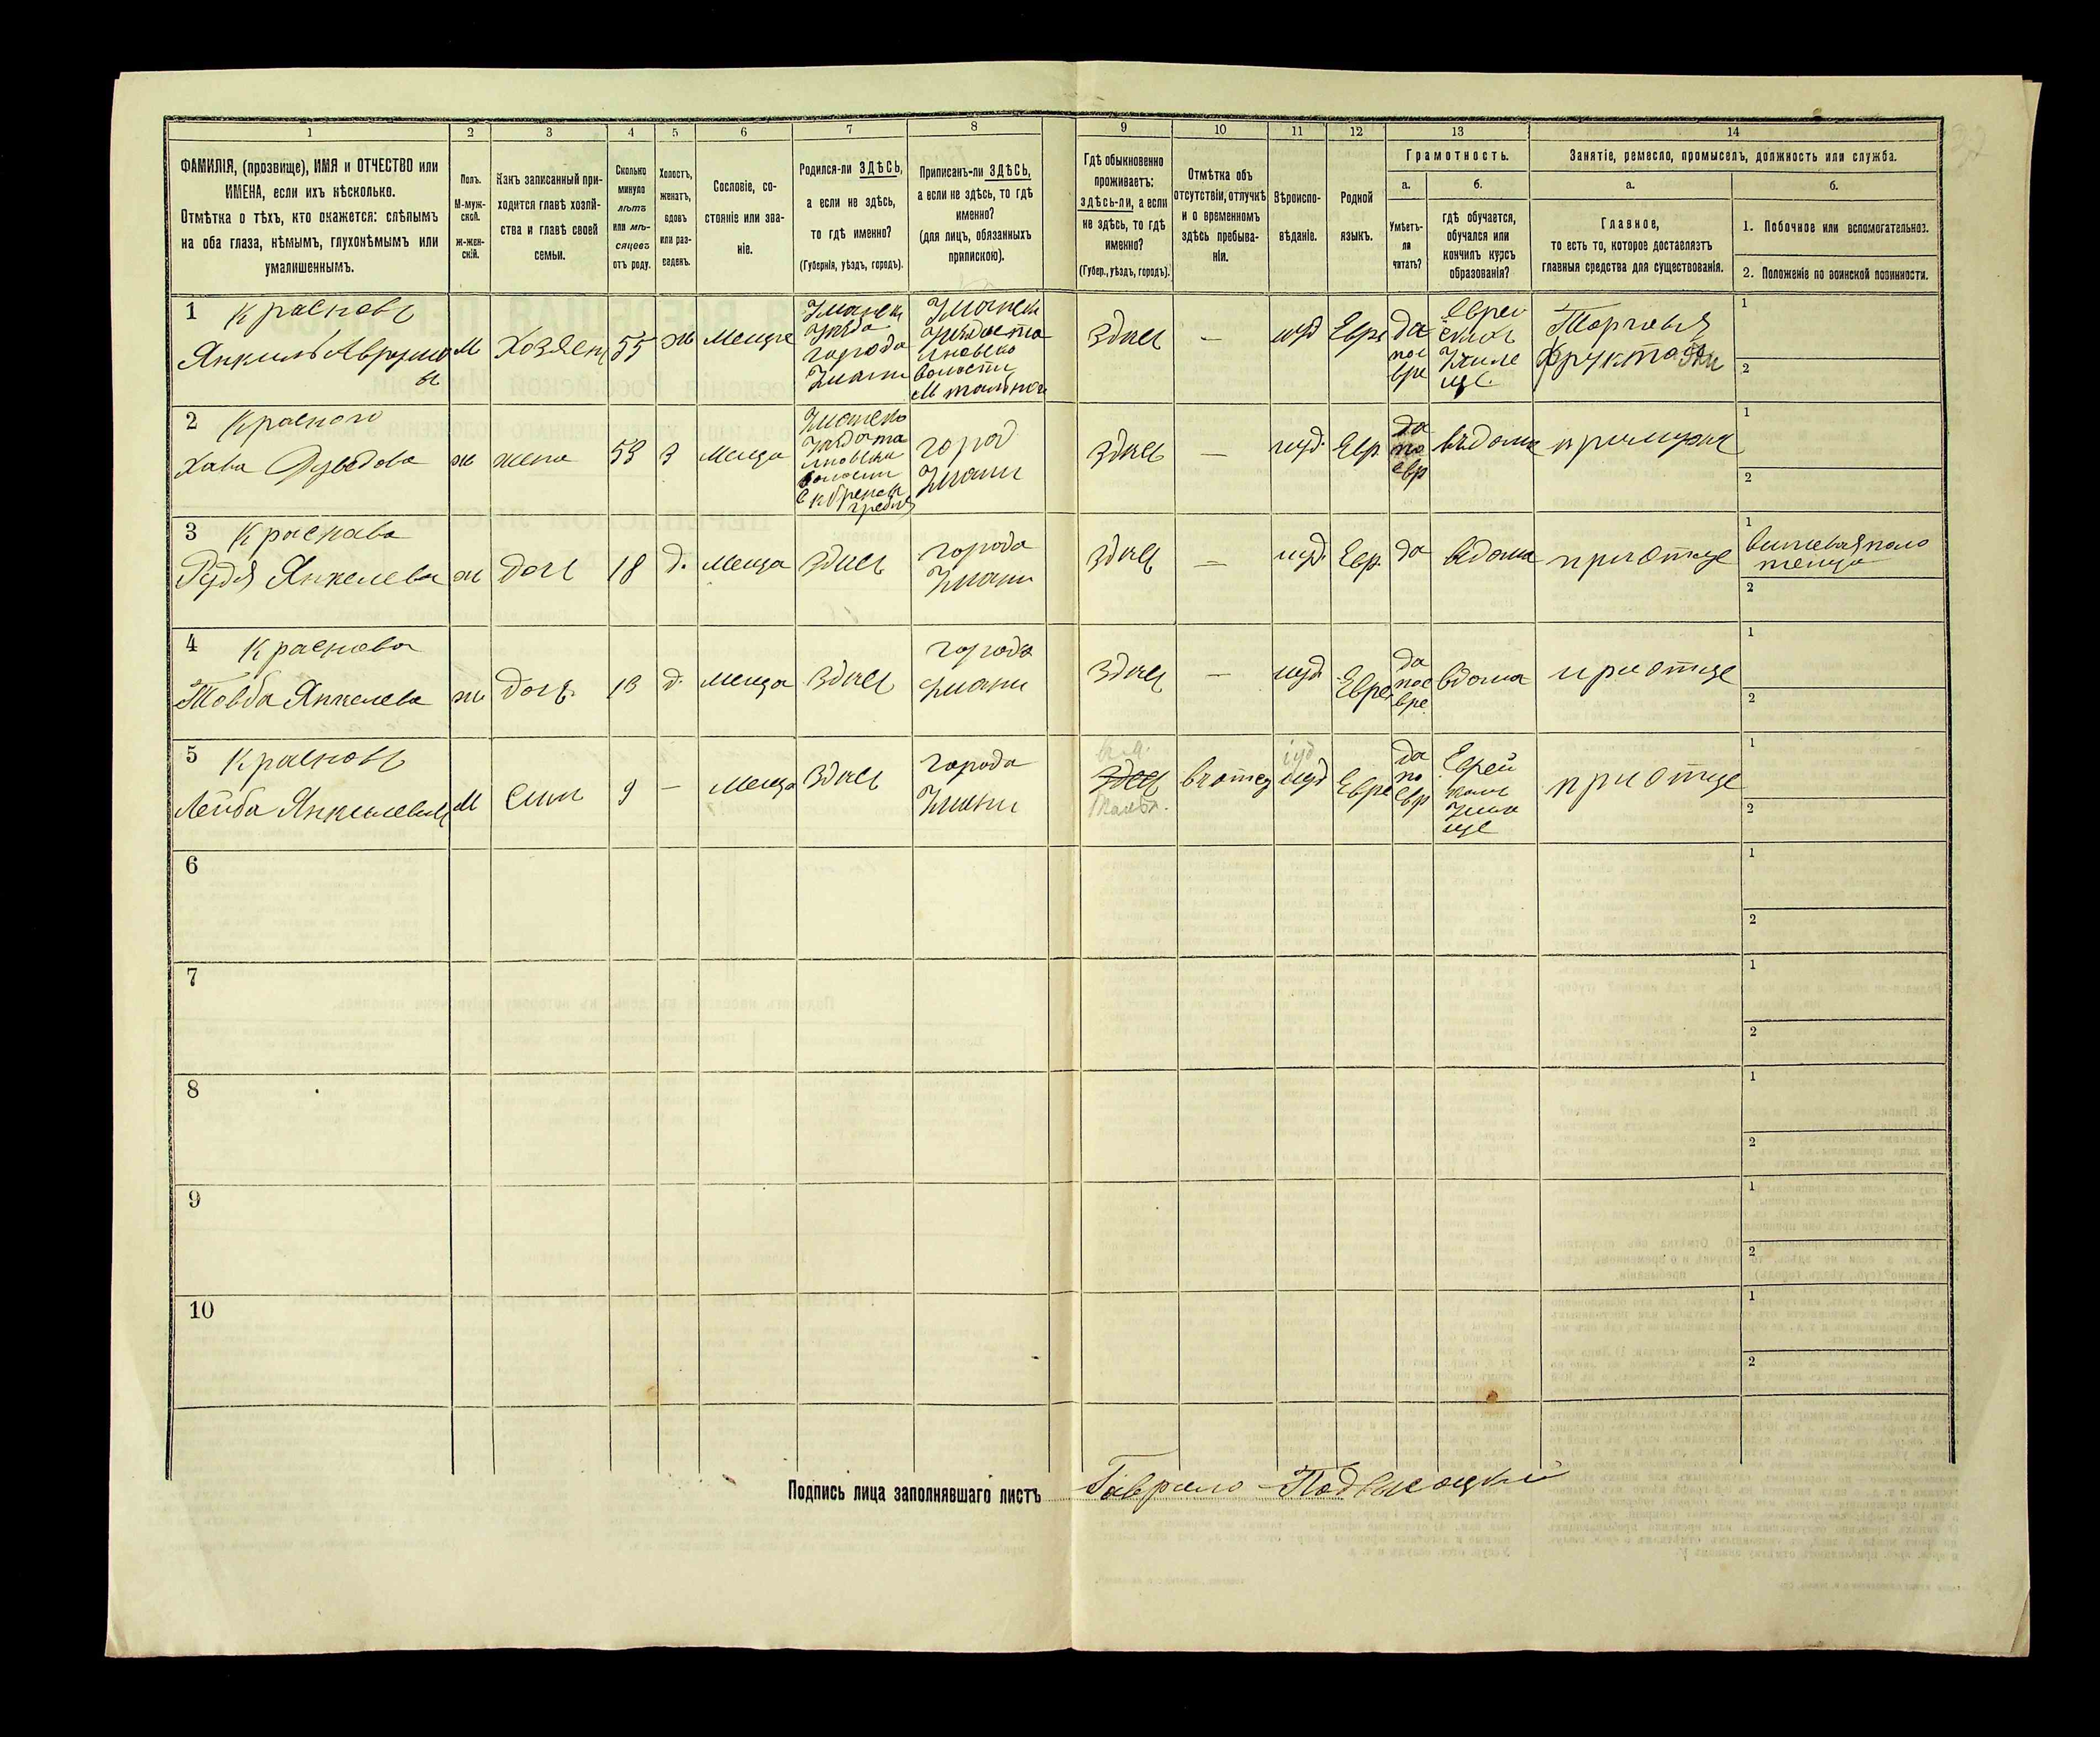 1 2 3 4 5 6 7 8 9 10 11 12 13 14
ФАМИЛІЯ, (прозвище), ИМЯ и ОТЧЕСТВО или
ИМЕНА, если ихъ нѣсколько.
Отмѣтка о тѣхъ, кто окажется: слѣпымъ
на оба глаза, нѣмымъ, глухонѣмымъ или
умалишеннымъ.
Полъ.
М-муж-
ской.
ж-жен-
скій.
Какъ записанный при-
ходится главѣ хозяй-
ства и главѣ своей
семьи.
Сколько
минуло
лѣтъ
или мѣ-
сяцевъ
отъ роду.
Холостъ,
женатъ,
вдовъ
или раз-
веденъ.
Сословіе, со-
стояніе или зва-
ніе.
Родился-ли ЗДѢСЬ,
а если не здѣсь,
то гдѣ именно?
(Губернія, уѣздъ, городъ).
Приписанъ-ли ЗДѢСЬ,
а если не здѣсь, то гдѣ
именно?
(для лицъ, обязанныхъ
припискою).
Гдѣ обыкновенно
проживаетъ:
здѣсь-ли, а если
не здѣсь, то гдѣ
именно?
(Губер., уѣздъ, городъ).
Отмѣтка объ
отсутствіи, отлучкѣ
и о временномъ
здѣсь пребыва-
ніи.
Вѣроиспо-
вѣданіе.
Родной
языкъ.
Грамотность.
а.
Умѣетъ-
ли
читать?
б.
гдѣ обучается,
обучался или
кончилъ курсъ
образованія?
Занятіе, ремесло, промыселъ, должность или служба.
а.
Главное,
то есть то, которое доставляетъ
главныя средства для существованія.
б.
1. Побочное или вспомогательное.
2. Положеніе по воинской повинности.
1 Красновъ
Янкиль
М
Хозяен
55
ж
города
волости
Здись
—
иуд
Евре
да
Торговля
фруктами
1
2
2 Красного
Хава
ж
жена
53
З
Меща
волости
город
Умани
Здись
—
иуд.
Евр
да
по
евр
въдома
примужа
1
2
3 Краснава
Рудя Янкелева
ж
Доч
18
д.
Меща
Здись
города
Умани
Здись
—
иуд.
Евр.
да
вдома
приотце
1
2
4 Краснова
Товба Янкелева
ж
Доч
13
д.
Меща
Здись
города
Умани
Здись
—
иуд
Евре
да
вдома
приотце
1
2
5 Красновъ
Лейба
М
Сын
9
—
Меща
Здись
города
Умани
Здись
иуд
иуд
Евре
да
по
евр
Еврей
приотце
1
2
6
1
2
7
1
2
8
1
2
9
1
2
10
1
2
Подпись лица заполнявшаго листъ Гаврило Подвысоцкий